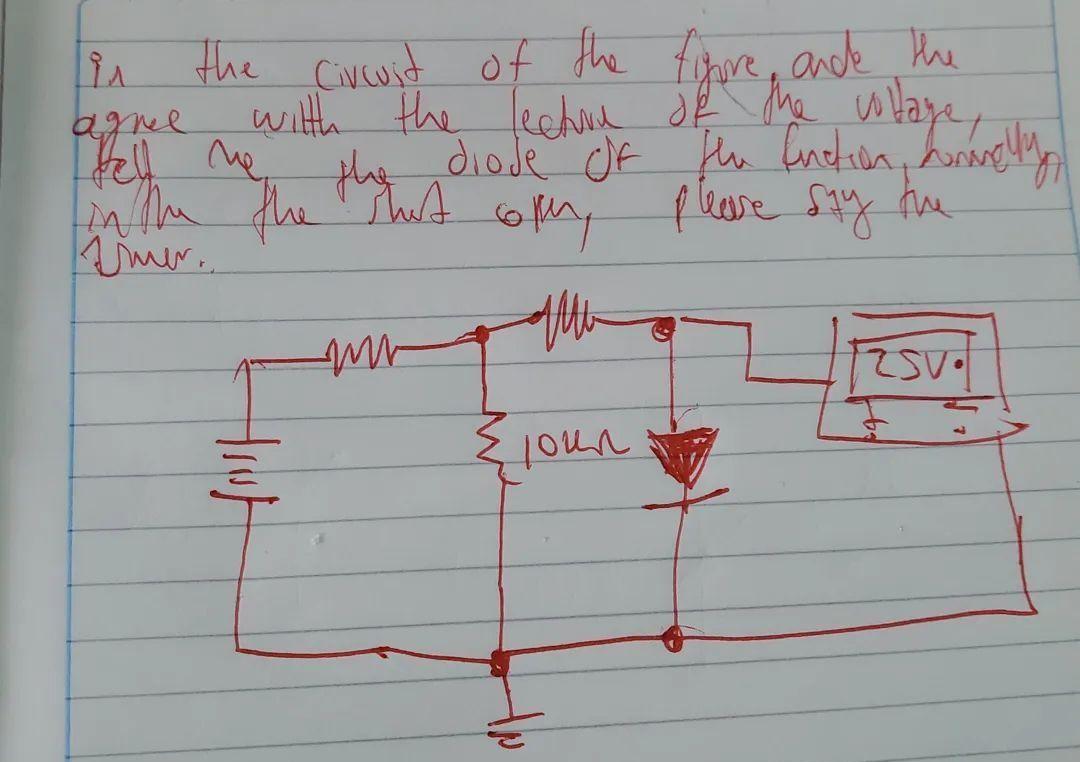 in the circuit of the figure, and the
agree with the lecture of the voltage,
tell me, the diode of the function, normally,
in the the short open, please say the
25V.
10kΩ